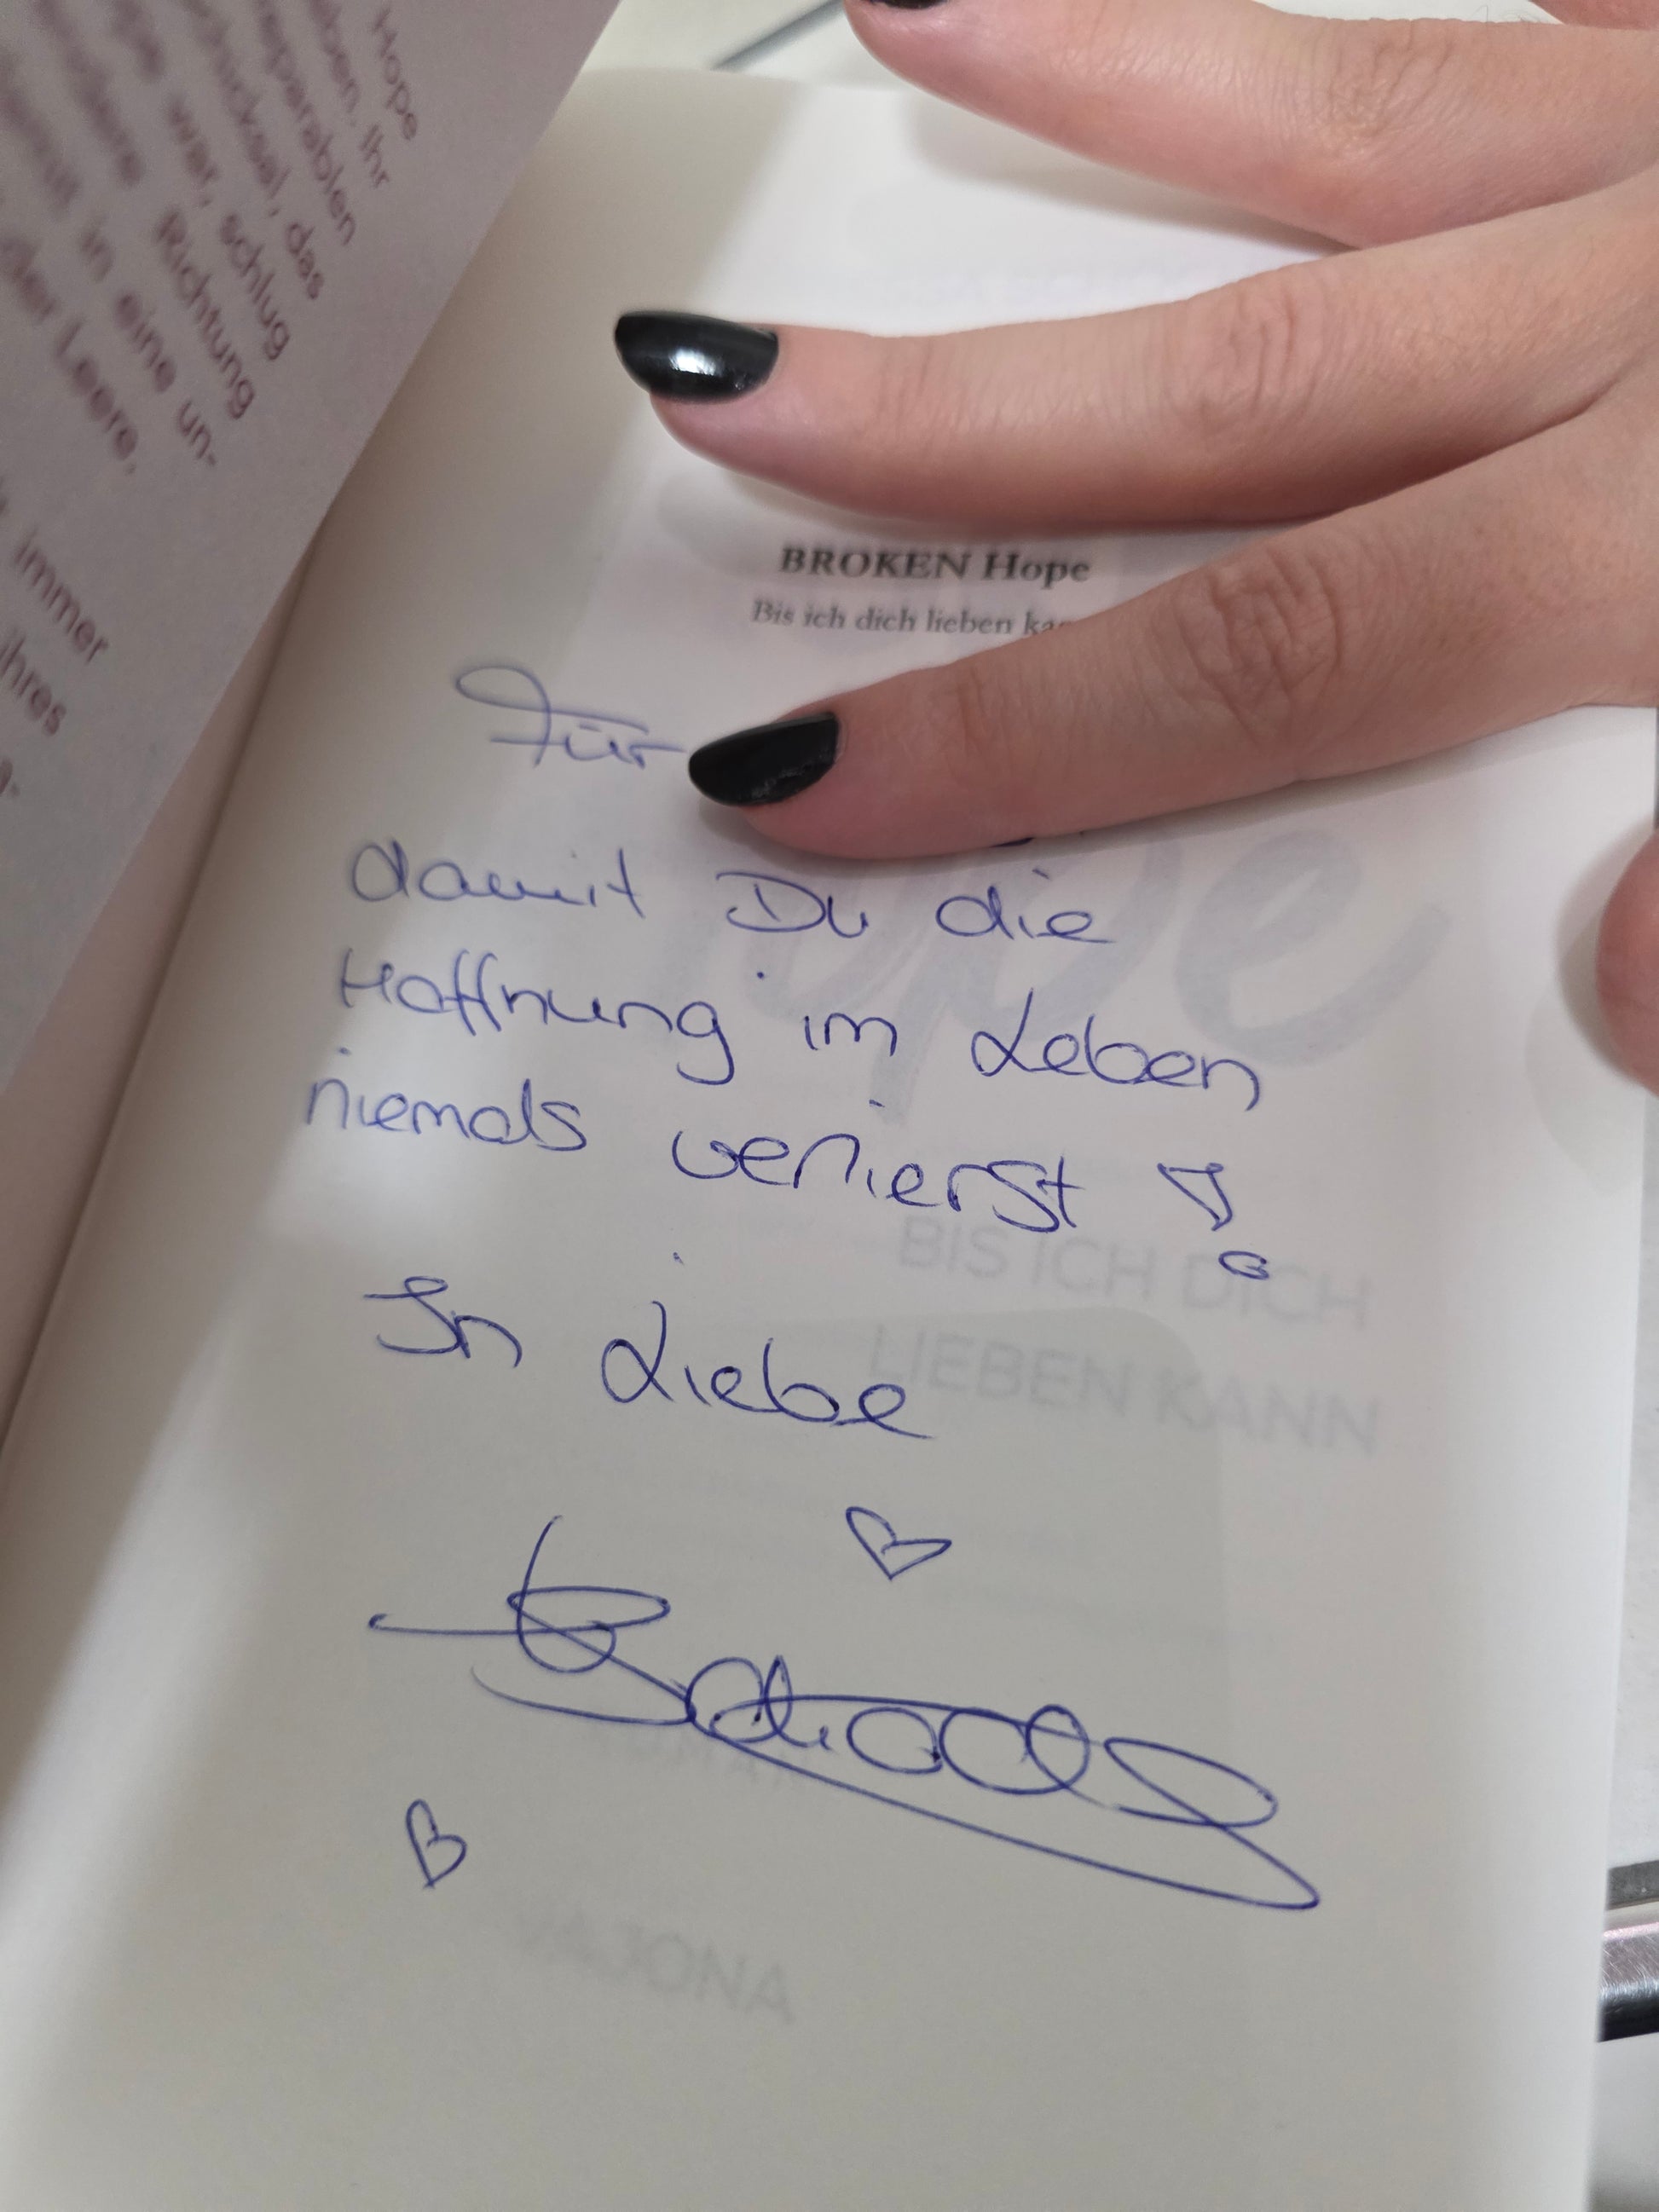 Hope
ben. Ihr
eparablen
chicksal, das
war, schlug
Richtung
in eine un-
der Leere,
immer
ihres
BROKEN Hope
Bis ich dich lieben
Für
damit Du die
Hoffnung im Leben
niemals verlierst !
In Liebe
BIS ICH DICH
LIEBEN KANN
VAJONA